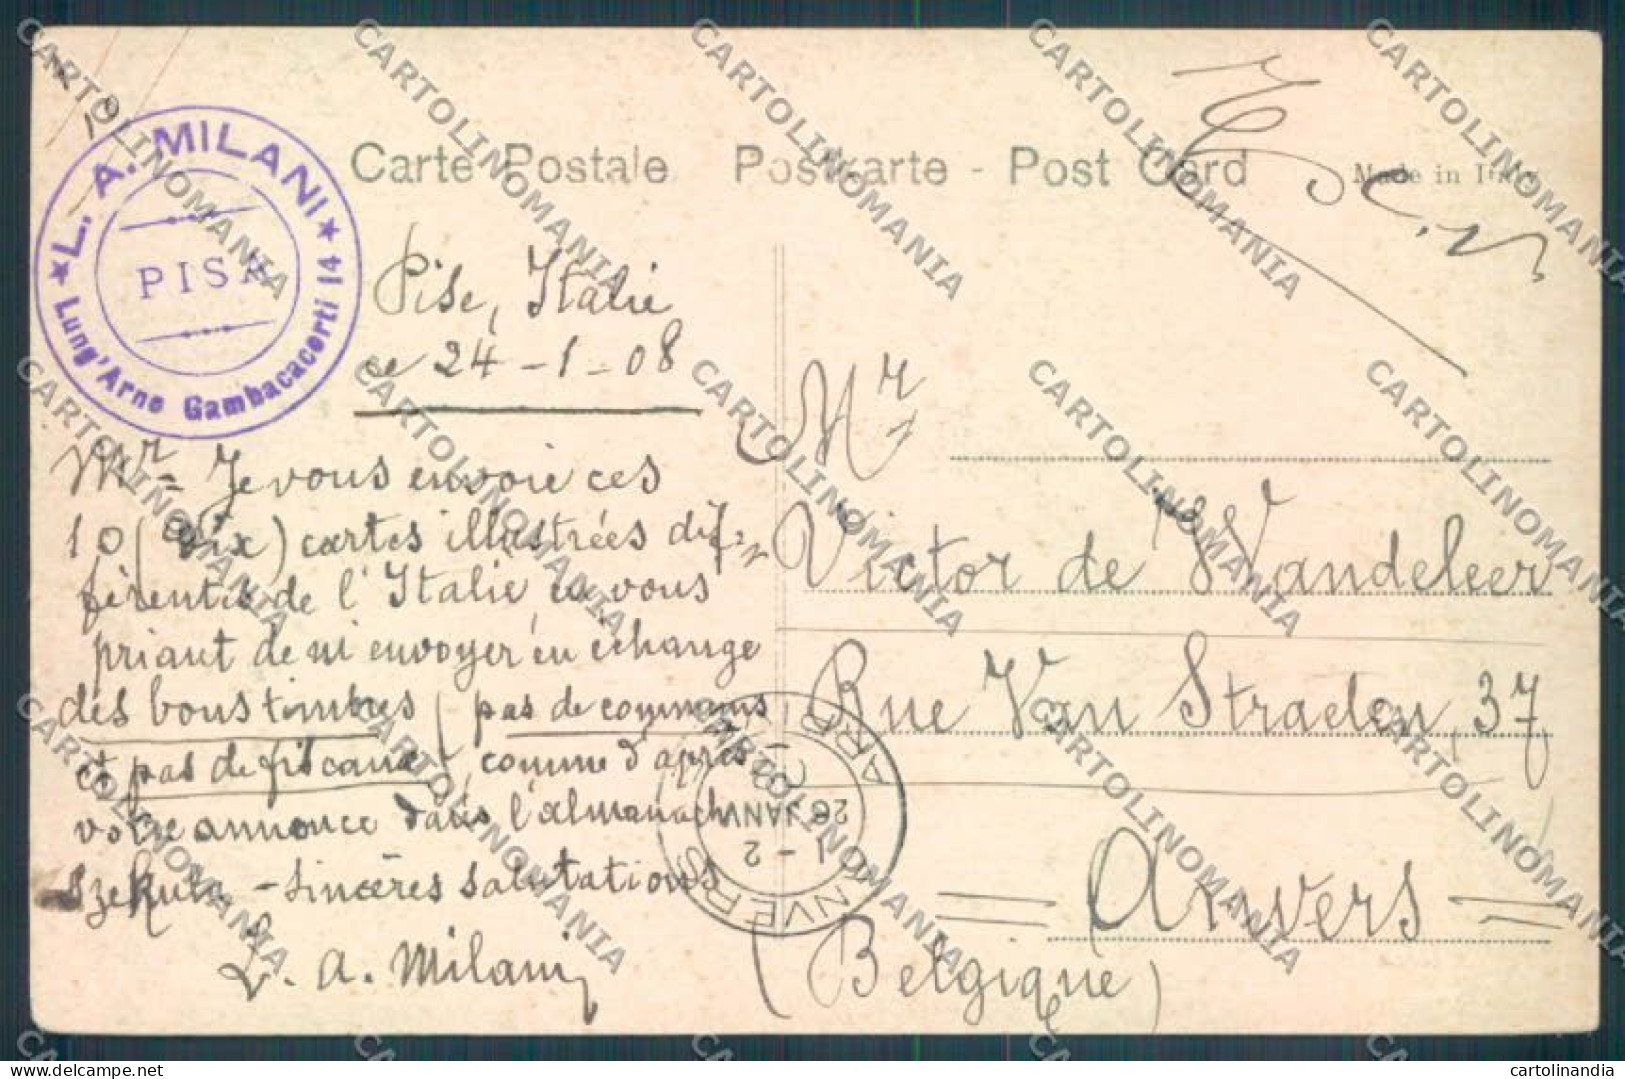 L. A. MILANI
PISA
Lung'Arno Gambacorti 14
Carte Postale Postkarte - Post Card
Made in Italy
T.C.V.
Pise, Italie
ce 24-1-08
Mr = Je vous envoie ces
10 (dix) cartes illustrées dif-
férentes de l'Italie, en vous
priant de m'envoyer en échange
des bons timbres (pas de communs
et pas de fiscaux), comme d'après
votre annonce dans l'almanach
Szekula - Sincères salutations
L. A. Milani
Mr
Victor de Wandeleer
Rue Van Straelen, 37
= Anvers =
(Belgique)
ANVERS
1-2
26 JANV
ARR
cartolinandia